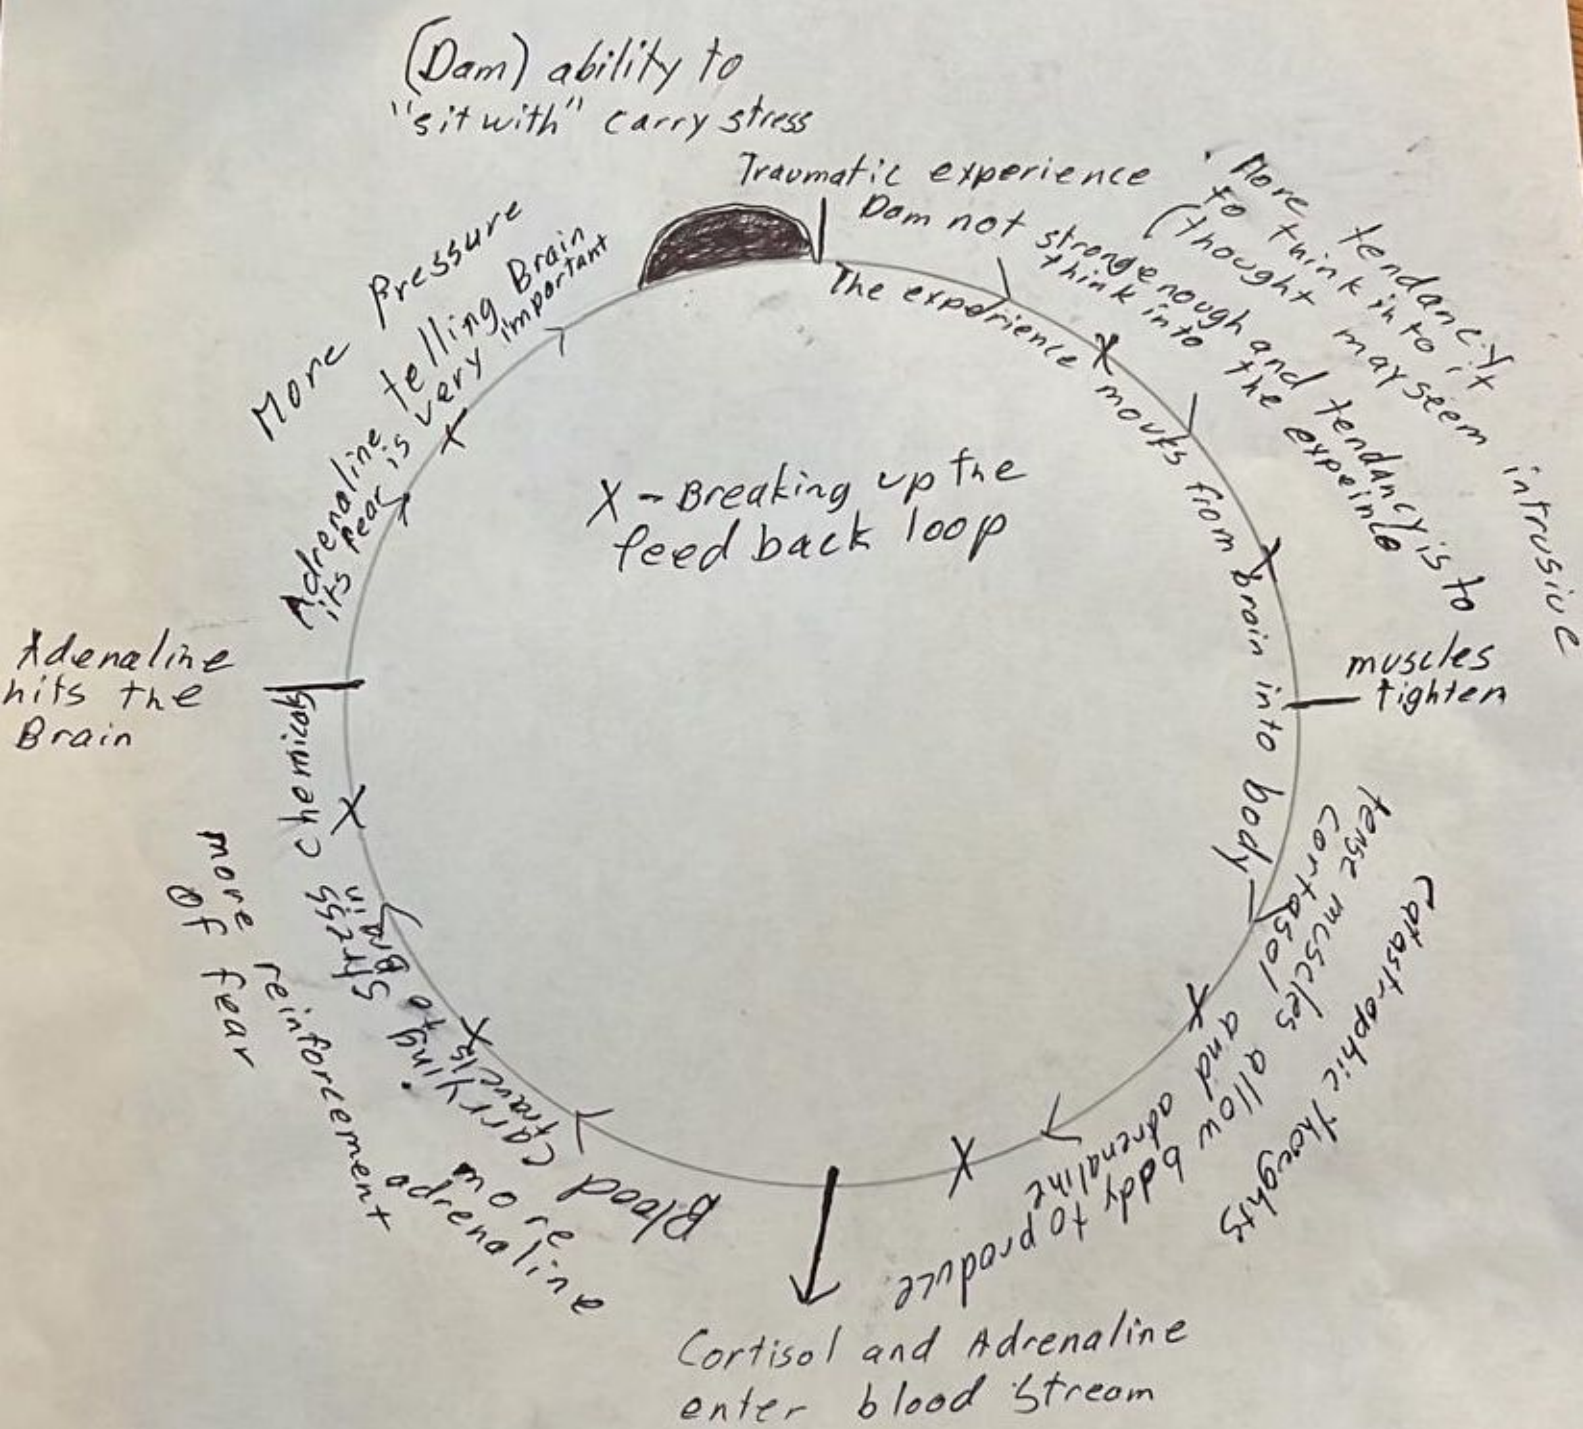 (Dam) ability to
"sit with" carry stress
Traumatic experience
Dam not strong enough and tendancy is to
think into the expeince
• More tendancy
to think into it
(thought may seem intrusive
The experience moves from brain into body
muscles
tighten
tense muscles allow body to produce
cortasol and adrenaline
catastrophic thoughts
Cortisol and Adrenaline
enter blood stream
Blood carrying stress chemicals
travels to Brain
more
adrenaline
more reinforcement
of fear
Adenaline
hits the
Brain
Adrenaline telling Brain
its fear is very important
More Pressure
X - Breaking up the
feed back loop
X
X
X
X
X
X
X